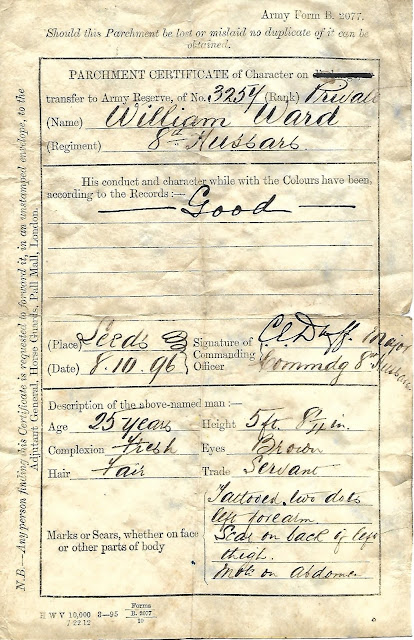 Army Form B. 2077.
Should this Parchment be lost or mislaid no duplicate of it can be
obtained.
PARCHMENT CERTIFICATE of Character on
transfer to Army Reserve, of No. 3257 (Rank) Private
(Name) William Ward
(Regiment) 8th Hussars
His conduct and character while with the Colours have been,
according to the Records:—
Good
(Place) Leeds
(Date) 8.10.96
Signature of
Commanding
Officer
Duff. Major
Commdg 8th Hussars
Description of the above-named man:—
Age 25 years Height 5 ft. 8 1/4 in.
Complexion Fresh Eyes Brown
Hair Fair Trade Servant
Marks or Scars, whether on face
or other parts of body
Tattooed two dots
left forearm
Scar on back of left
thigh.
Mole on abdomen
H W V 10,000 3—95 Forms
B. 2077
10
N.B.—Any person finding this Certificate is requested to forward it, in an unstamped envelope, to the
Adjutant General, Horse Guards, Pall Mall, London.